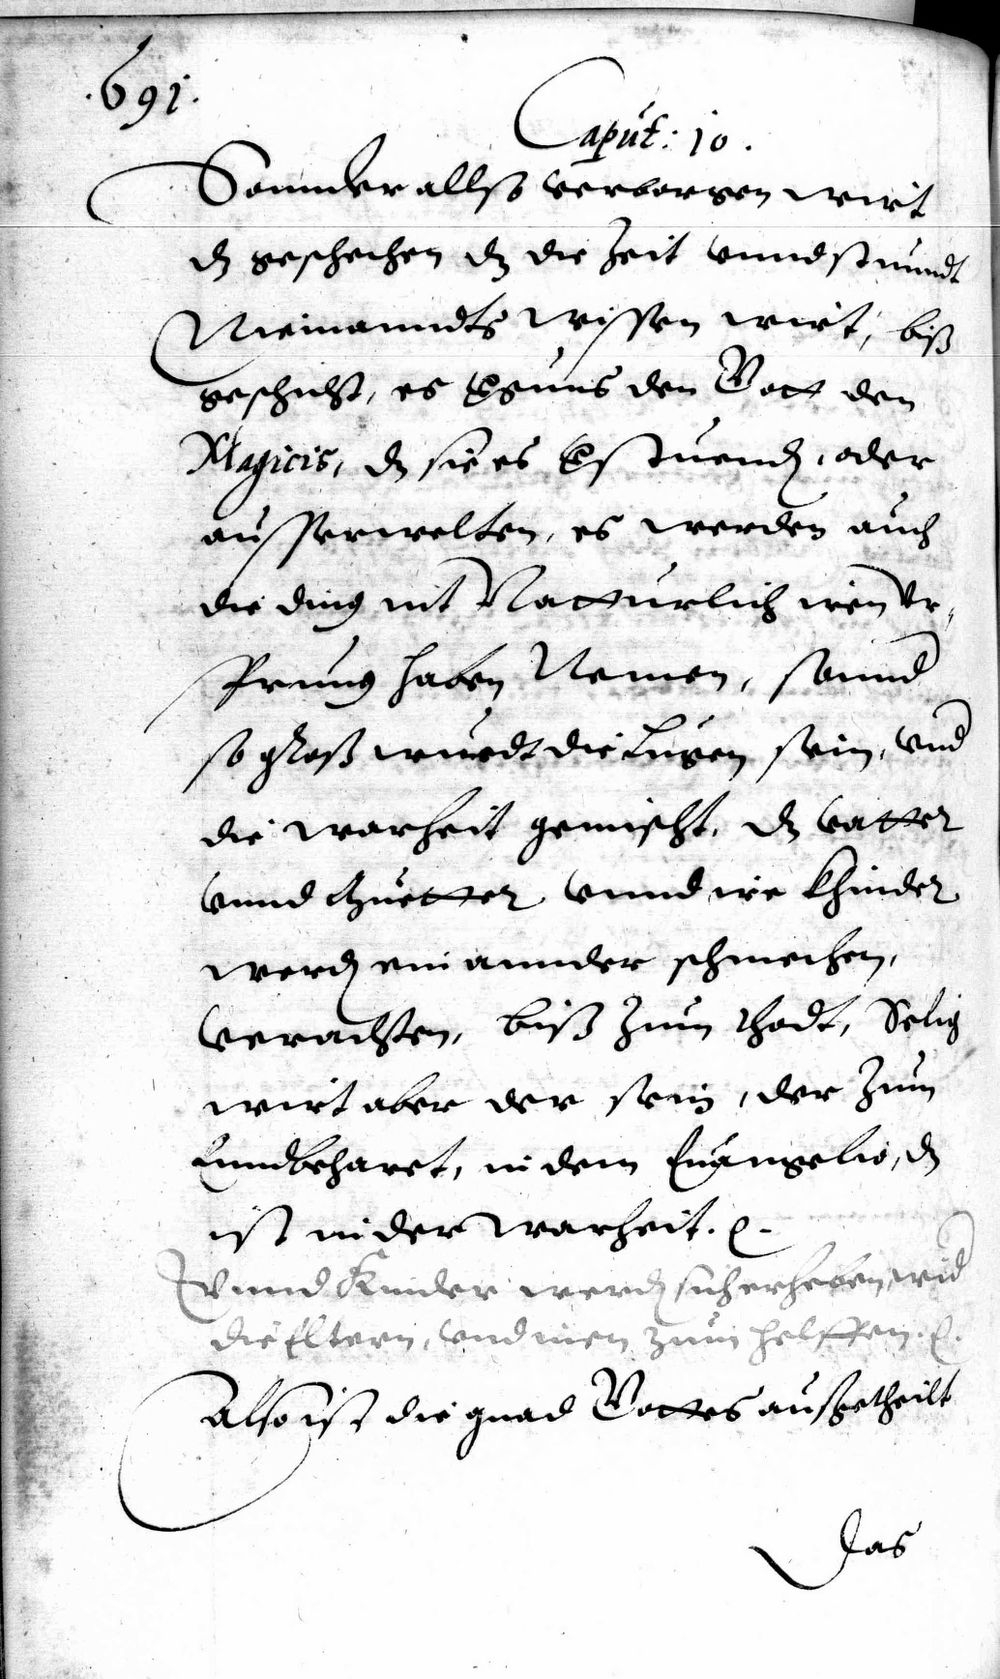 .691.
Caput: 10.
Sonnder allso verborgen wirt
dz geschechen dz die Zeit vnnd stunndt
Niemanndts wissen wirt, biß
geschicht, es den Gott den
Magicis, dz sie es oder
ausserwelten, es werden auch
die ding nit Natturlich iren Vr,
sprung haben Nemen, sonnd
so groß wurdt die Lugen sein, vnd
die warheit gemischt, dz vatter
vnnd Muetter vnnd ire Khinder
werdn ein annder schmechen,
verachten, biß Zum thodt, Selig
wirt aber der sein, der Zum
Ennd beharet, in dem Euangelio, dz
ist in der warheit. e.
Vnnd Kinder werdn sich erheben wid
die Eltern, vnd inen zum helffen. e.
Also ist die gnad Gottes ausgetheilt
Das